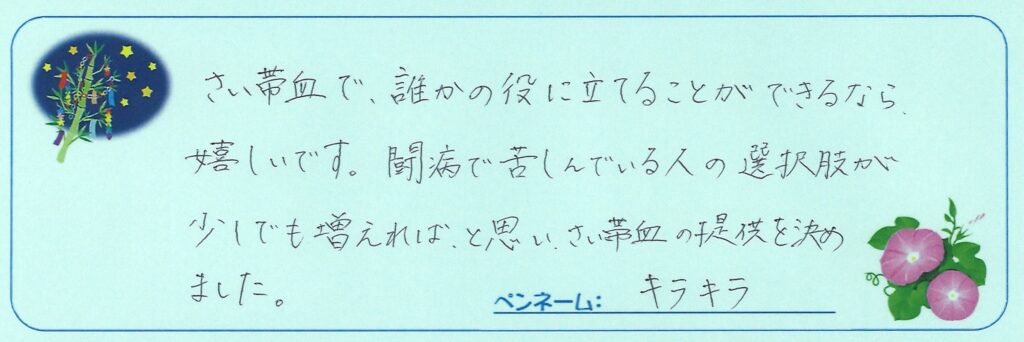 さい帯血で、誰かの役に立てることができるなら、
嬉しいです。闘病で苦しんでいる人の選択肢が
少しでも増えれば、と思い、さい帯血の提供を決め
ました。
ペンネーム: キラキラ